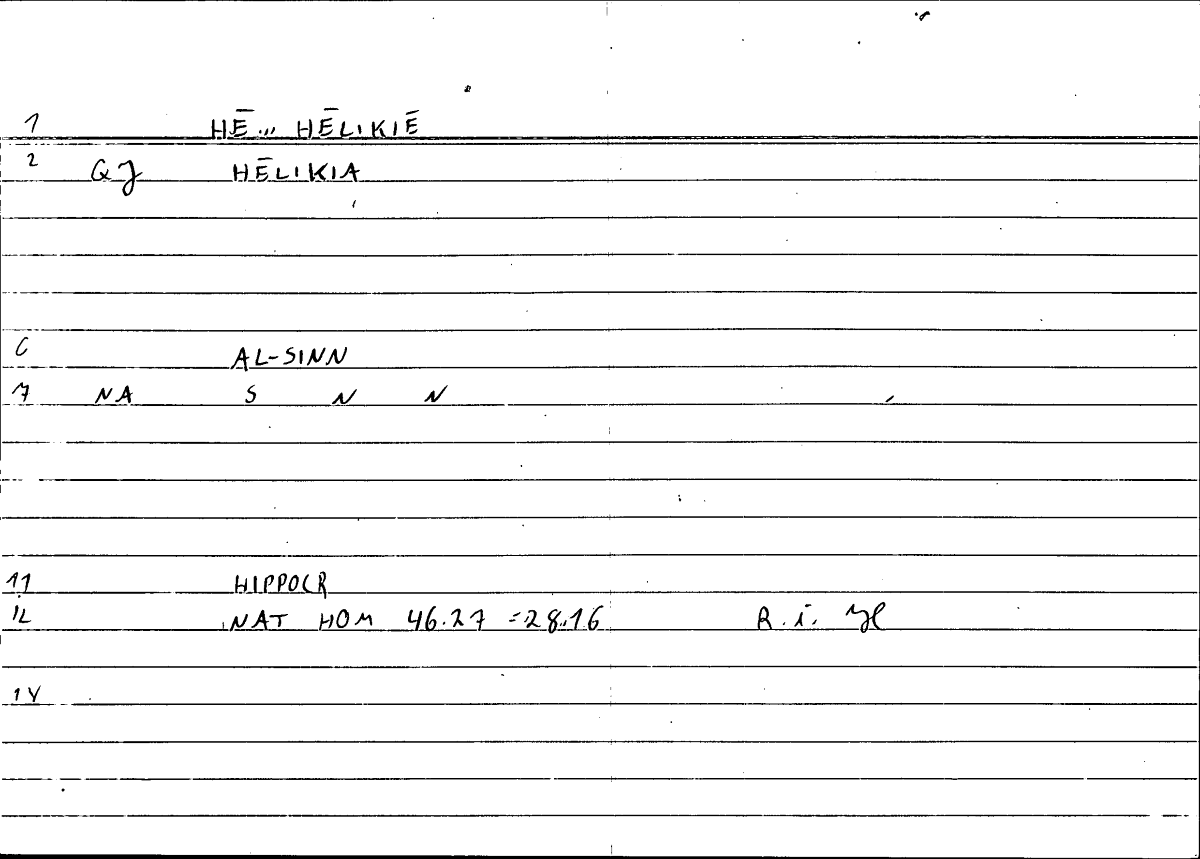 1 HĒ... HĒLIKIĒ
2 GJ HĒLIKIA
6 AL-SINN
7 NA S N N
11 HIPPOCR
12 NAT HOM 46.27 =28.16 R. i.
14